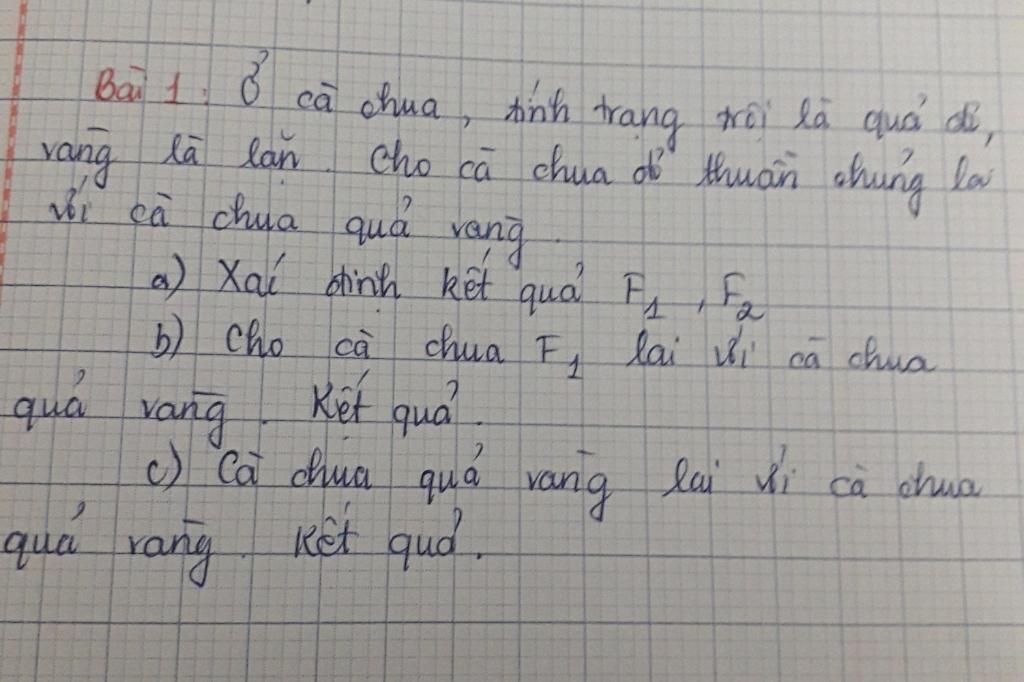 Bài 1. Ở cà chua, tính trạng trội là quả đỏ,
vàng là lặn. Cho cà chua đỏ thuần chủng lai
với cà chua quả vàng.
a) Xác định kết quả F1, F2
b) Cho cà chua F1 lai với cà chua
quả vàng. Kết quả.
c) Cà chua quả vàng lai với cà chua
quả vàng. Kết quả.